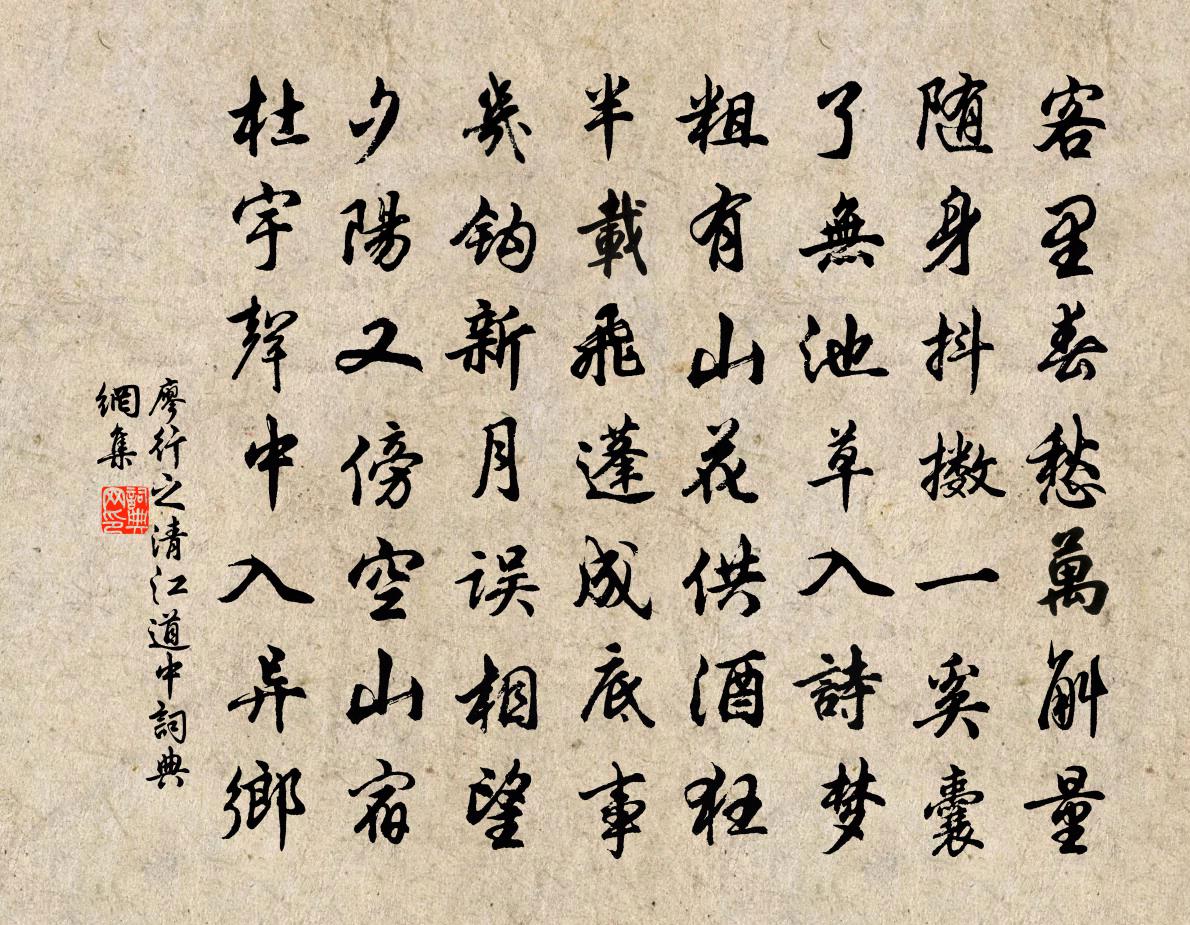 客里春愁萬斛量
随身抖擻一奚囊
了無池草入詩梦
粗有山花供酒狂
半載飛蓬成底事
幾鈎新月误相望
夕陽又傍空山宿
杜宇聲中入异鄉
廖行之清江道中詞典
網集
詞典
网印